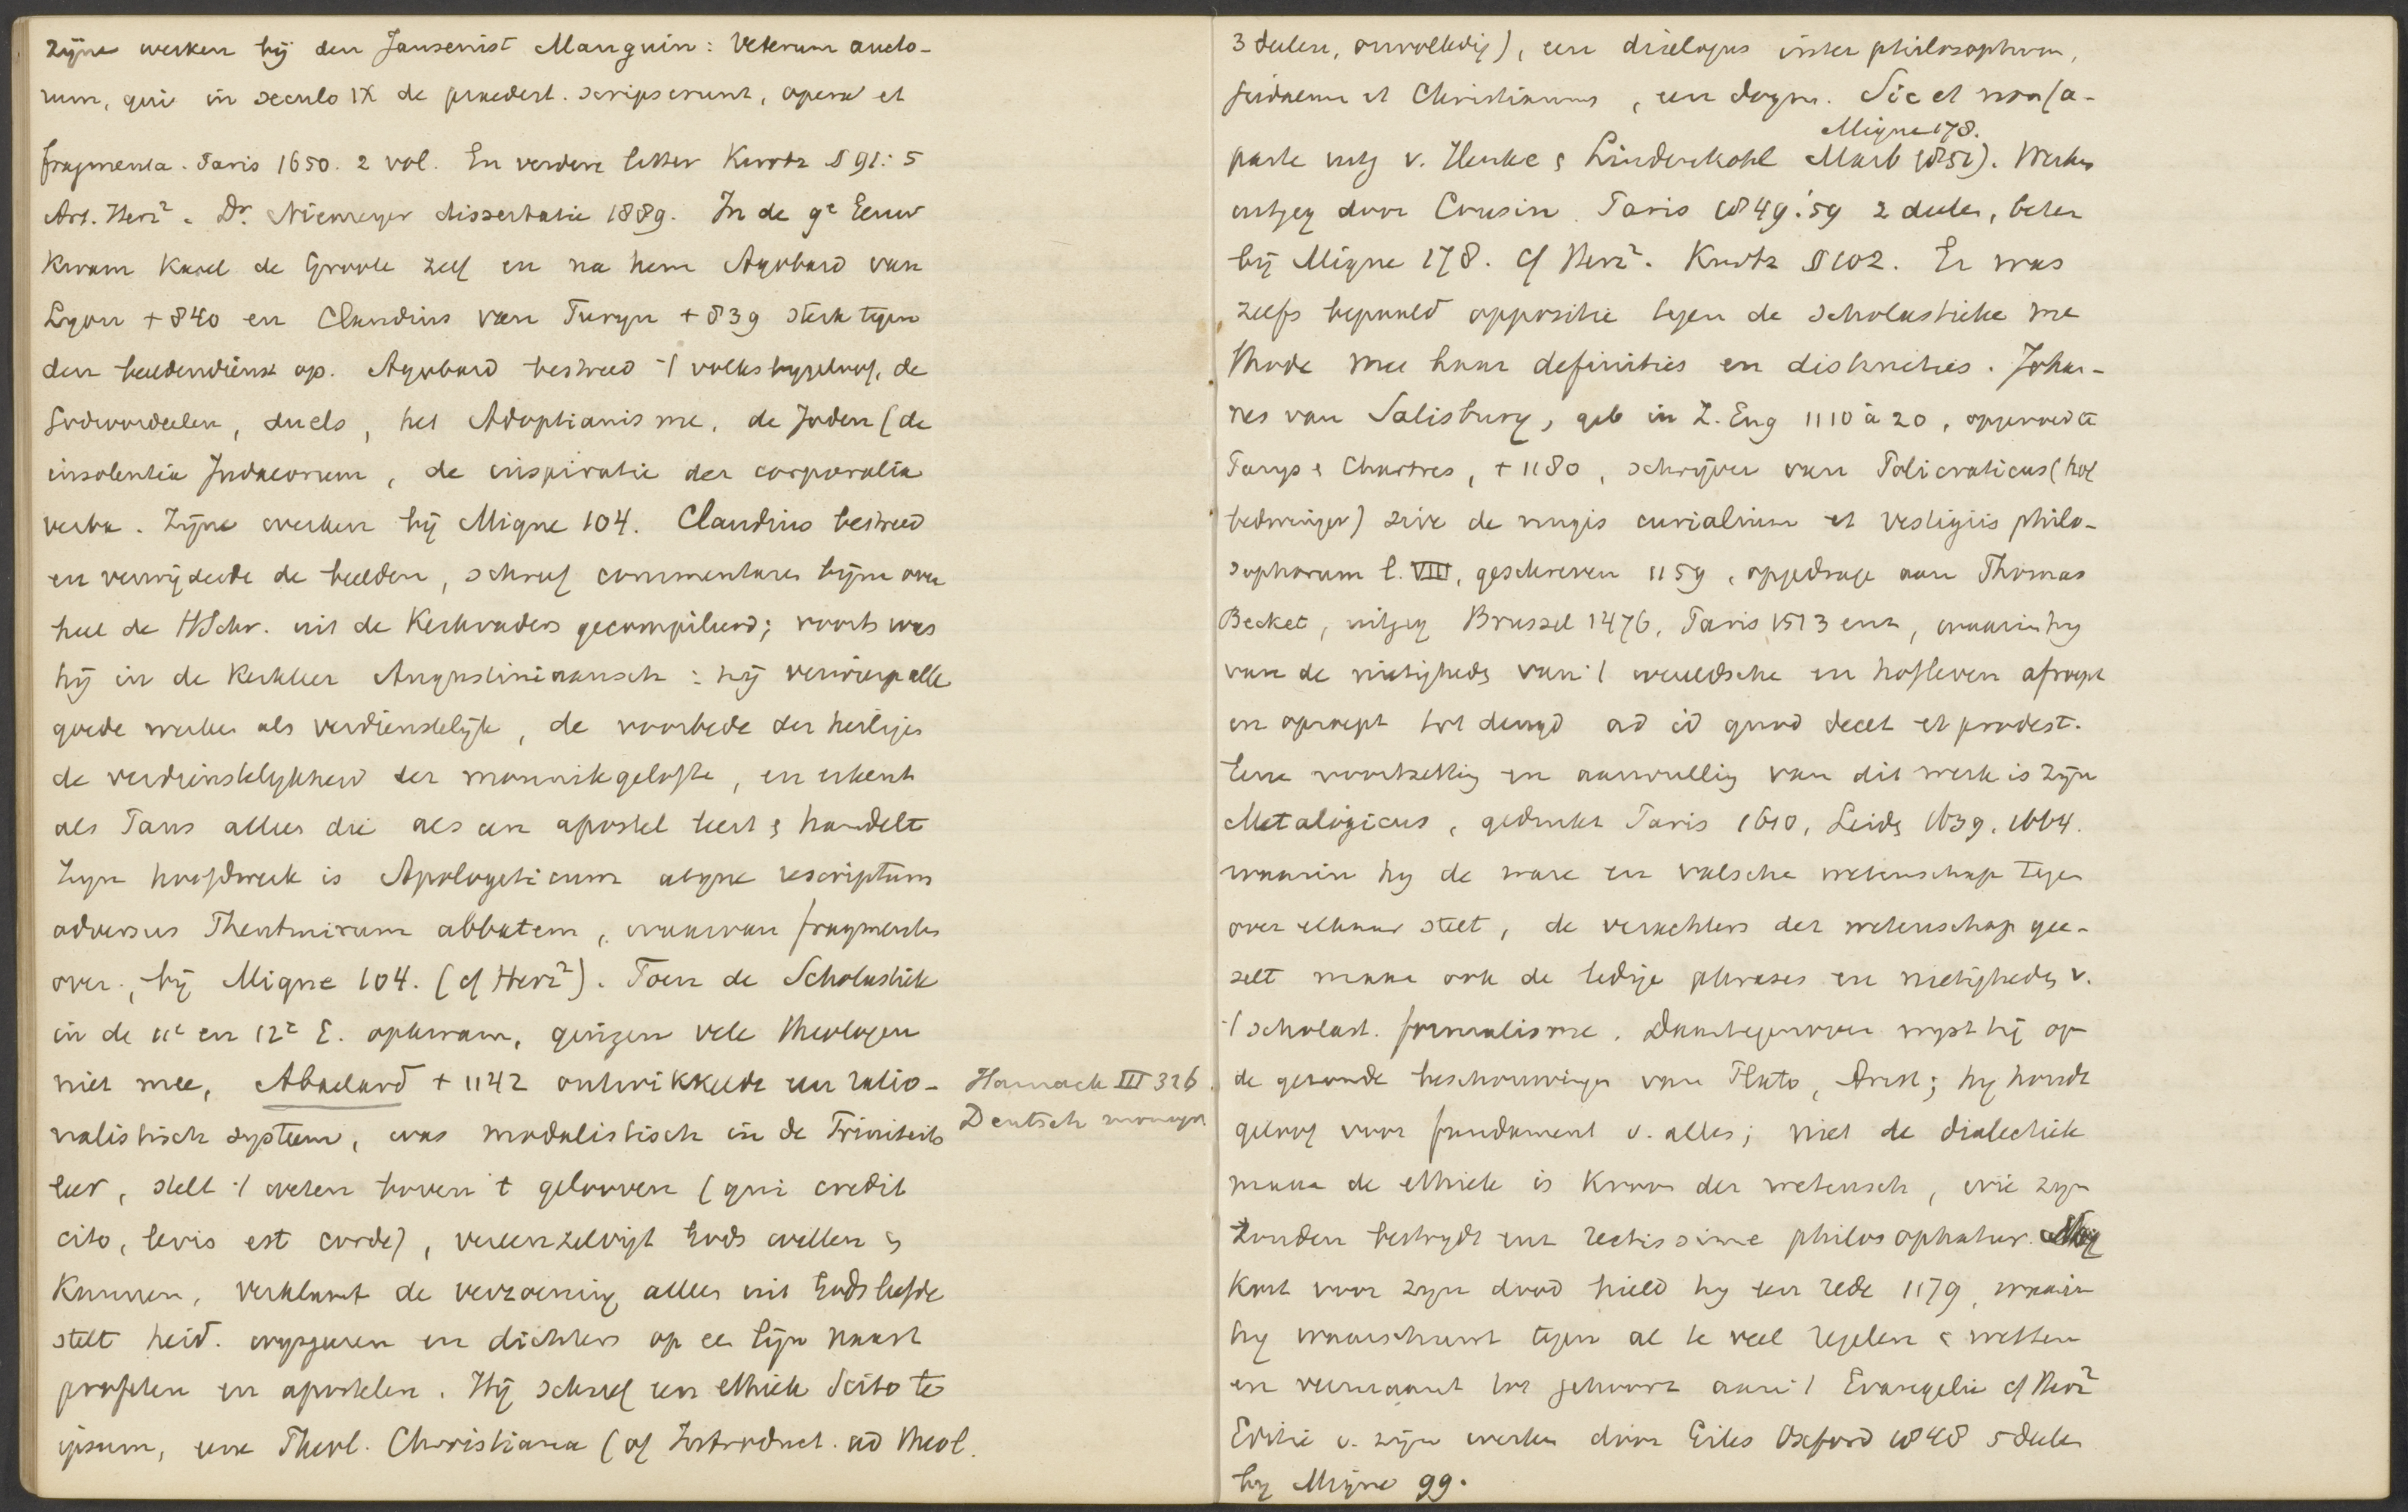 zijne werken bij den Jansenist Mauguin: Veterum aucto-
rum, qui in seculo IX de praedest. scripserunt, opera et
fragmenta. Paris 1650. 2 vol. En verdere litter Kurtz § 91: 5
Art. Herz². Dr. Niemeyer dissertatie 1889. In de 9e Eeuw
kwam Karel de Groote zelf en na hem Agobard van
Lyon + 840 en Claudius van Turyn + 839 sterk tegen
den beeldendienst op. Agobard bestreed 't volksbygeloof, de
Godsoordeelen, duels, het Adoptianisme, de Joden (de
insolentia Judaeorum, de inspiratie der corporalia
verba. Zijne werken bij Migne 104. Claudius bestreed
en verwijderde de beelden, schreef commentaren bijna over
heel de HSchr. uit de Kerkvaders gecompileerd; voorts was
hij in de kerkleer Augustiniaansch: hij verwierp alle
goede werken als verdienstelijk, de voorbede der heiligen
de verdienstelykheid der monnikgelofte, en erkent
als Paus alleen die als een apostel leert & handelt
Zijn hoofdwerk is Apologeticum atque rescriptum
adversus Theutmirum abbatem, waarvan fragmenten
over, bij Migne 104. (cf Herz²). Toen de Scholastiek
in de 11e en 12e E. opkwam, gingen vele theologen
niet mee, Abaelard + 1142 ontwikkelde een ratio-
nalistisch systeem, was modalistisch in de Triniteits
leer, stelt 't weten boven 't gelooven (qui credit
cito, levis est corde), vereenzelvigt Gods willen &
kunnen, verklaart de verzoening alleen uit Gods liefde
stelt heid. wijsgeeren en dichters op ee lijn naast
profeten en apostelen. Hij schreef een ethiek Scito te
ipsum, eene Theol. Christiana (of Introduct. ad theol.
Harnack III 326.
Deutsch
3 deelen, onvolledig), een dialogus inter philosophum,
Judaeum et Christianum, een dogm. Sic et non (a-
Migne 178.
parte uitg v. Henke & Lindenkohl Marb 1851). Werken
uitgeg door Cousin. Paris 1849.'59 2 deelen, beter
bij Migne 178. cf Herz². Kurtz § 102. Er was
zelfs bepaald oppositie tegen de scholastieke me
thode met haar definities en distincties. Johan-
nes van Salisbury, geb in Z. Eng 1110 à 20, opgevoed te
Parys & Chartres, + 1180, schrijver van Policraticus (hof
bedwinger) sive de nugis curialium et vestigiis philo-
sophorum l. VIII, geschreven 1159, opgedrage aan Thomas
Becket, uitgeg Brussel 1476, Paris 1513 enz, waarin hij
van de nietigheden van 't wereldsche en hofleven afroept
en oproept tot deugd ad id quod decet et prodest.
Eene voortzetting en aanvulling van dit werk is zijn
Metalogicus, gedrukt Paris 1610, Leiden 1639, 1664.
waarin hij de ware en valsche wetenschap tegen
over elkaar stelt, de verachters der wetenschap gee-
selt maar ook de ledige phrases en nietigheden v.
't scholast. formalisme. Daartegenover wijst hij op
de gezonde beschouwingen van Plato, Arist; hij houdt
geloof voor fundament v. alles; niet de dialectiek
maar de ethiek is kroon der wetensch, wie zijn
zonden bestrydt enz rectissime philosophatur.
Kort voor zijn dood hield hij een rede 1179, waarin
hij waarschuwt tegen al te veel regelen & wetten
en vermaant tot gehoorz aan 't Evangelie cf Herz²
Editie v. zijn werken door Giles Oxford 1848 5 deelen
bij Migne 99.